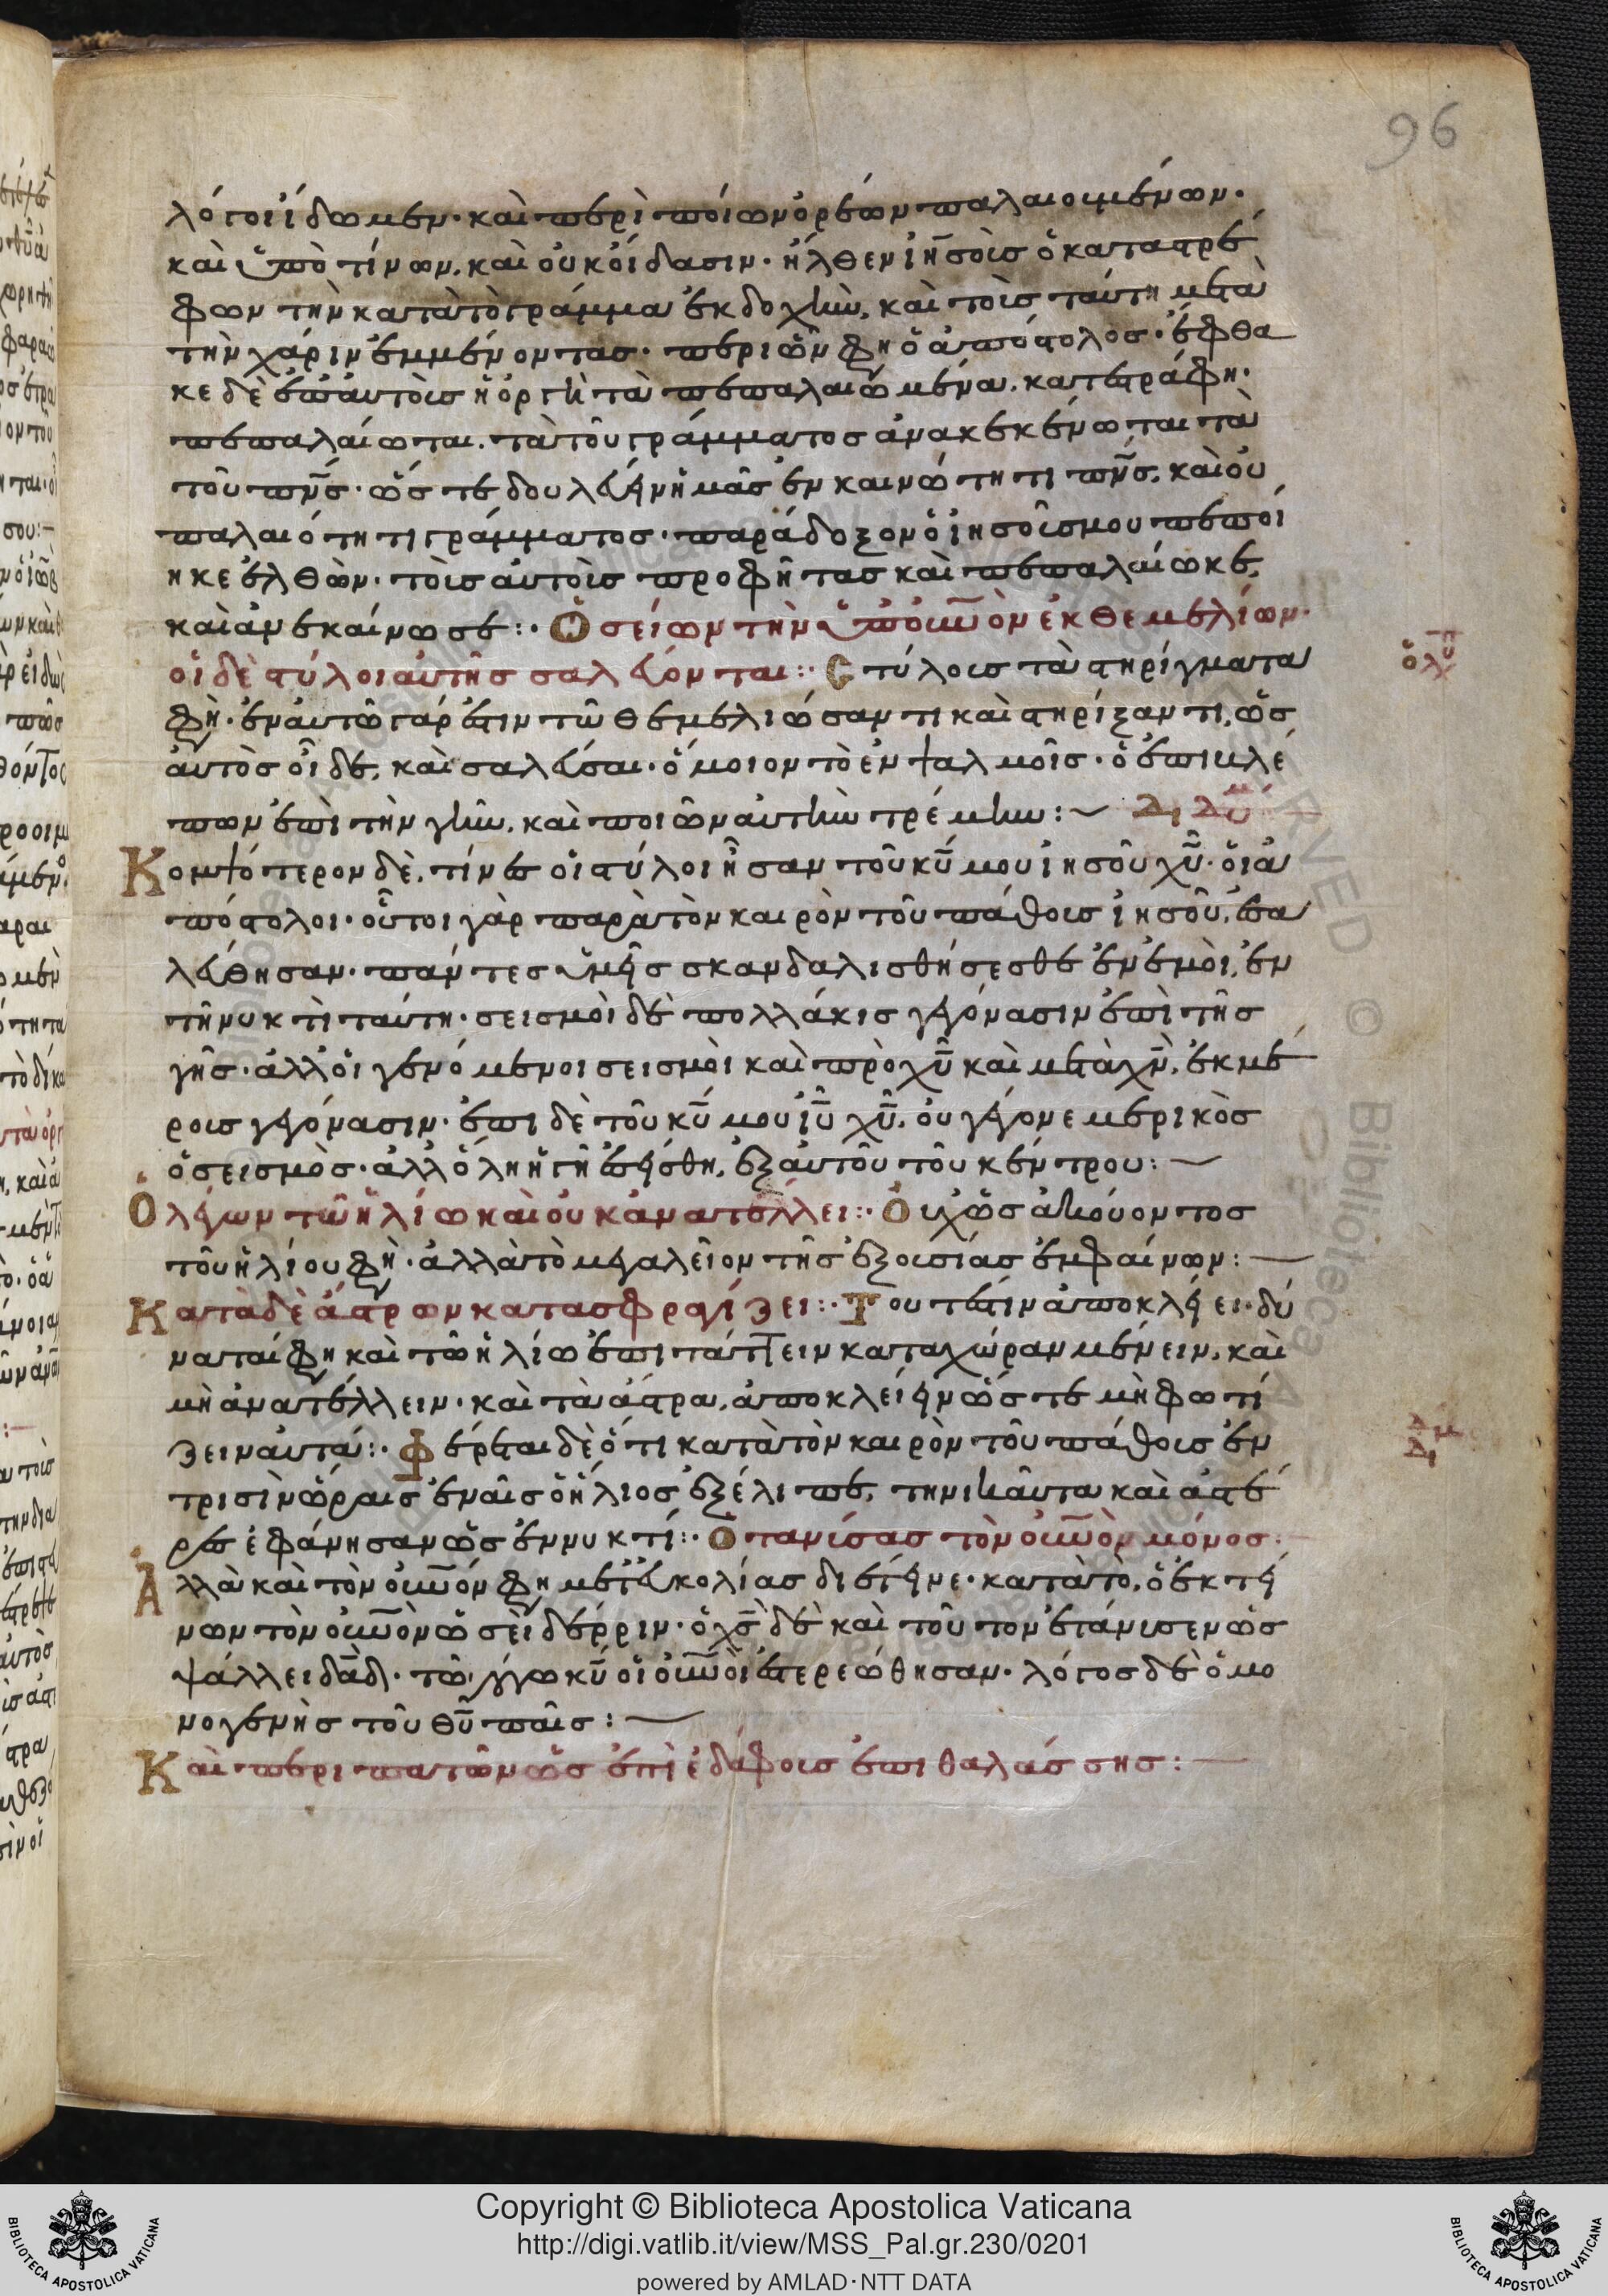 96
λόγοι ἴδωμεν· καὶ περὶ ποίων ὀρέων παλαιουμένων·
καὶ ὑπὸ τίνων, καὶ οὐκ οἴδασιν· ἦλθεν ἰησοῦς ὁ καταστρέ
φων τὴν κατὰ τὸ γράμμα ἐκδοχὴν, καὶ τοὺς ταύτη μετὰ
τὴν χάριν ἐμμένοντας· περὶ ὧν φησὶ ὁ ἀπόστολος· ἔφθα
κε δὲ ἐπ' αὐτοὺς ἡ ὀργὴ τὰ πεπαλαιωμένα, κατεστράφη·
πεπαλαίωται. τὰ τοῦ γράμματος ἀνακεκαίνωται τὰ
τοῦ πνς· ὥστε δουλεύειν ἡμᾶς ἐν καινότητι πνς, καὶ οὐ
παλαιότητι γράμματος· παράδοξον ὁ ἰησοῦς μου πεποί
ηκε ἐλθὼν· τοὺς αὐτοὺς προφήτας καὶ πεπαλαίωκε,
καὶ ἀνεκαίνωσε:· Ὁ σείων τὴν ὑπ' οὐνὸν ἐκ θεμελίων·
οἱ δὲ στύλοι αὐτῆς σαλεύονται:· Στύλους τὰ στηρίγματα
φησὶ· ἐν αὐτῶ γάρ ἐστιν τῶ θεμελιώσαντι καὶ στηρίξαντι, ὡς
αὐτὸς οἶδε, καὶ σαλεῦσαι· ὅμοιον τὸ ἐν ψαλμοῖς· ὁ ἐπιβλέ
πων ἐπὶ τὴν γῆν, καὶ ποιῶν αὐτὴν τρέμειν:~
Κομψότερον δὲ, τίνες οἱ στύλοι ἦσαν τοῦ κυ μου ἰησοῦ χυ· οἱ ἀ
πόστολοι· οὗτοι γὰρ παρὰ τὸν καιρὸν τοῦ πάθους ἰησοῦ, ἐσα
λεύθησαν· πάντες ὑμεῖς σκανδαλισθήσεσθε ἐν ἐμοὶ, ἐν
τῆ νυκτὶ ταύτη· σεισμοὶ δὲ πολλάκις γεγόνασιν ἐπὶ τῆς
γῆς· ἀλλ' οἱ γενόμενοι σεισμοὶ καὶ πρὸ χυ καὶ μετὰ χν, ἐκ μέ
ρους γεγόνασιν· ἐπὶ δὲ τοῦ κυ μου ιυ χυ, οὐ γέγονε μερικὸς
ὁ σεισμὸς· ἀλλ' ὅλη ἡ γῆ ἐσείσθη, ἐξ αὐτοῦ τοῦ κέντρου:—
Ὁ λέγων τῶ ἡλίω καὶ οὐκ ἀνατέλλει:· Οὐχ ὡς ἀκούοντος
τοῦ ἡλίου φησὶ· ἀλλὰ τὸ μεγαλεῖον τῆς ἐξουσίας ἐμφαίνων:—
Κατὰ δὲ ἄστρων κατασφραγίζει:· Τουτέστιν ἀποκλείει· δύ
ναται φησὶ καὶ τῶ ἡλίω ἐπιτάττειν κατὰ χώραν μένειν, καὶ
μὴ ἀνατέλλειν· καὶ τὰ ἄστρα, ἀποκλείειν ὥστε μὴ φωτί
ζειν αὐτά:· Φέρεται δὲ ὅτι κατὰ τὸν καιρὸν τοῦ πάθους ἐν
τρισὶν ὥραις ἐν αἷς ὁ ἥλιος ἐξέλιπε, τηνικαῦτα καὶ ἀστέ
ρες ἐφάνησαν ὡς ἐν νυκτί:· Ὁ τανύσας τὸν οὐνὸν μόνος:
Ἀλλὰ καὶ τὸν οὐνόν φησὶ μετ' εὐκολίας διέτεινε· κατὰ τὸ, ὁ ἐκτεί
νων τὸν οὐνὸν ὡσεὶ δέρριν· ὁ χς δὲ καὶ τοῦτον ἐτάνυσεν ὡς
ψάλλει δαδ· τῶ λόγω κυ οἱ οὐνοὶ ἐστερεώθησαν· λόγος δὲ ὁ μο
νογενὴς τοῦ θυ παῖς:—
Καὶ περιπατῶν ὡς ἐπὶ ἐδάφους ἐπὶ θαλάσσης:—
Copyright © Biblioteca Apostolica Vaticana
http://digi.vatlib.it/view/MSS_Pal.gr.230/0201
powered by AMLAD·NTT DATA
BIBLIOTECA APOSTOLICA VATICANA
BIBLIOTECA APOSTOLICA VATICANA